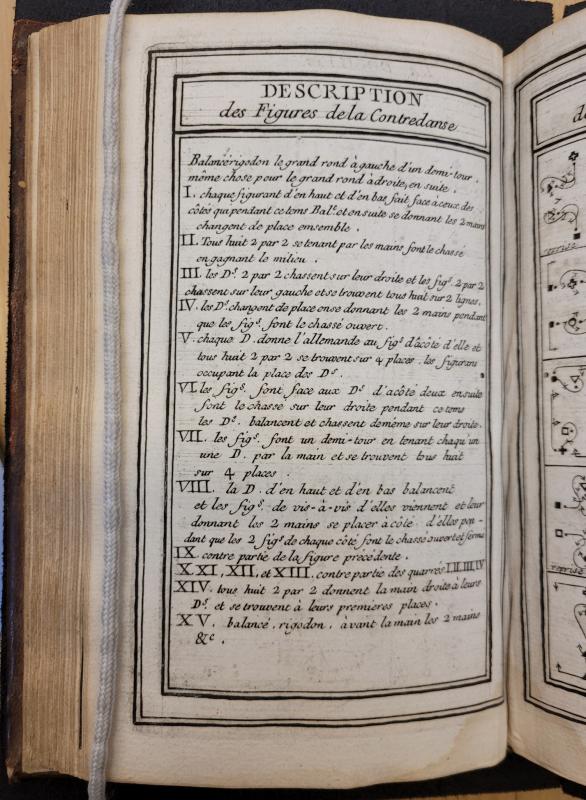 DESCRIPTION
des Figures de la Contredanse
Balancé rigodon le grand rond à gauche d'un demi-tour,
même chose pour le grand rond à droite, en suite.
I. chaque figurant d'en haut et d'en bas fait face à ceux des
côtés qui pendant ce tems Bal.t et en suite se donnant les 2 mains
changent de place emsemble.
II. Tous huit 2 par 2 se tenant par les mains font le chassé
en gagnant le milieu.
III. les D.s 2 par 2 chassent sur leur droite et les fig.s 2 par 2
chassent sur leur gauche et se trouvent tous huit sur 2 lignes.
IV. les D.s changent de place en se donnant les 2 mains pendant
que les fig.s font le chassé ouvert.
V. chaque D. donne l'allemande au fig.s d'àcôté d'elle et
tous huit 2 par 2 se trouvent sur 4 places. les figurans
occupant la place des D.s
VI. les fig.s font face aux D.s d'acôté deux ensuite
font le chasse sur leur droite pendant ce tems
les D.s balancent et chassent de même sur leur droite.
VII. les fig.s font un demi-tour en tenant chaqu'un
une D. par la main et se trouvent tous huit
sur 4 places.
VIII. la D. d'en haut et d'en bas balancent
et les fig.s de vis-à-vis d'elles viennent et leur
donnant les 2 mains se placer à côte d'elles pen-
dant que les 2 fig.s de chaque côté font le chasse ouvert et fermé
IX. contre partie de la figure precédente.
X. XI, XII, et XIII. contre partie des quarres I, II, III, IV
XIV. tous huit 2 par 2 donnent la main droite à leurs
D.s et se trouvent à leurs premieres places.
XV. balancé, rigodon, àvant la main les 2 mains
&c.
reprise
reprise